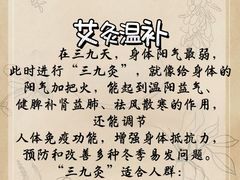 艾灸温补
在三九天，身体阳气最弱，
此时进行“三九灸”，就像给身体的
阳气加把火，能起到温阳益气、
健脾补肾益肺、祛风散寒的作用，
还能调节
人体免疫功能，增强身体抵抗力，
预防和改善多种冬季易发问题。
“三九灸”适合人群：